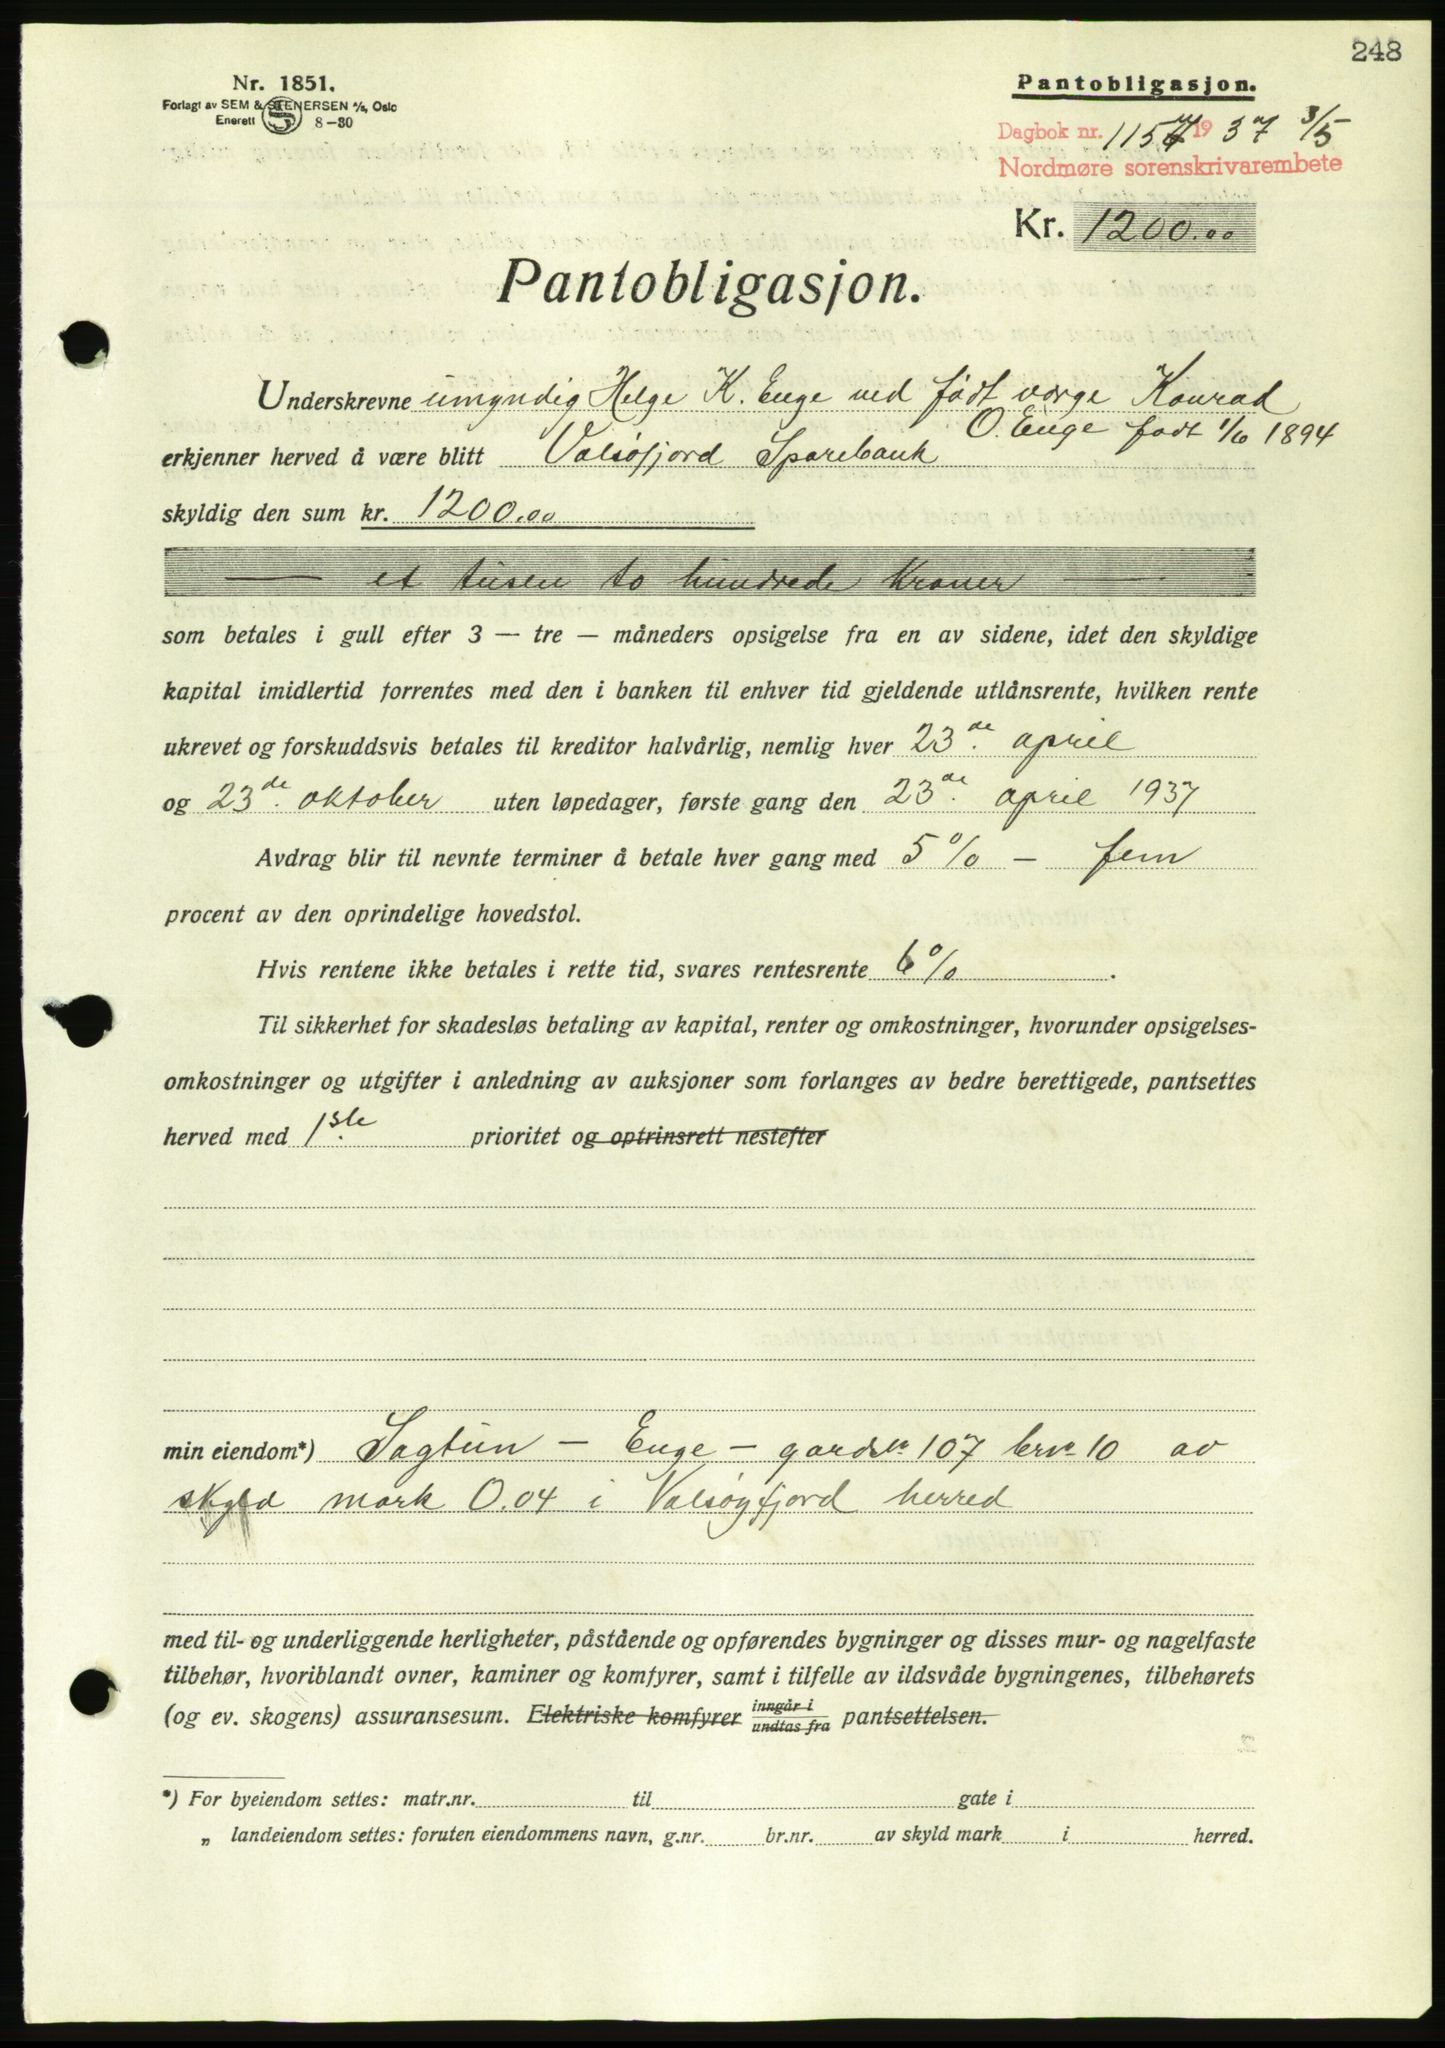 248
Nr. 1851.
Forlagt av SEM & STENERSEN A/S, Oslo
Enerett S 8-30
Pantobligasjon.
Dagbok nr. 1157 1937 3/5
Nordmøre sorenskrivarembete
Kr. 1200.00
Pantobligasjon.
Underskrevne umyndig Helge K. Enge ved født verge Konrad
O. Enge født 1/10 1894
erkjenner herved å være blitt Valsøfjord Sparebank
skyldig den sum kr. 1200.00
— et tusen to hundrede Kroner —
som betales i gull efter 3 — tre — måneders opsigelse fra en av sidene, idet den skyldige
kapital imidlertid forrentes med den i banken til enhver tid gjeldende utlånsrente, hvilken rente
ukrevet og forskuddsvis betales til kreditor halvårlig, nemlig hver 23de. april
og 23de. oktober uten løpedager, første gang den 23de. april 1937
Avdrag blir til nevnte terminer å betale hver gang med 5% — fem
procent av den oprindelige hovedstol.
Hvis rentene ikke betales i rette tid, svares rentesrente 6% .
Til sikkerhet for skadesløs betaling av kapital, renter og omkostninger, hvorunder opsigelses-
omkostninger og utgifter i anledning av auksjoner som forlanges av bedre berettigede, pantsettes
herved med 1ste. prioritet og optrinsrett nestefter
min eiendom*) Sagtun — Enge — gardsnr 107 brnr 10 av
skyld mark 0.04 i Valsøyfjord herred
med til- og underliggende herligheter, påstående og opførendes bygninger og disses mur- og nagelfaste
tilbehør, hvoriblandt ovner, kaminer og komfyrer, samt i tilfelle av ildsvåde bygningenes, tilbehørets
(og ev. skogens) assuransesum. Elektriske komfyrer inngår i / undtas fra pantsettelsen.
*) For byeiendom settes: matr.nr. til gate i
„ landeiendom settes: foruten eiendommens navn, g.nr. br.nr. av skyld mark i herred.